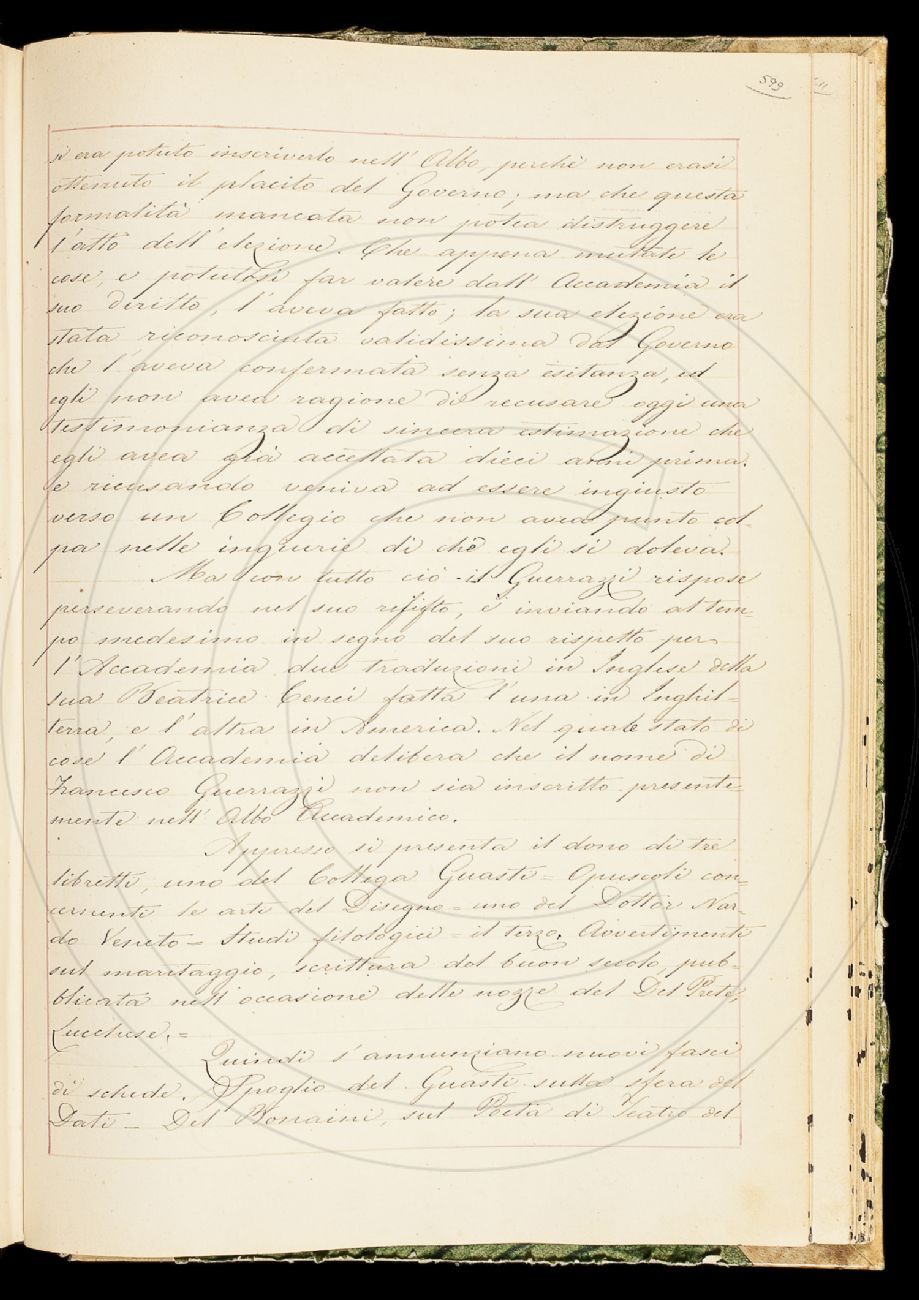 599
si era potuto inscriverlo nell' Albo, perchè non erasi
ottenuto il placito del Governo; ma che questa
formalità mancata non potea distruggere
l'atto dell'elezione. Che appena mutate le
cose, e potutosi far valere dall' Accademia il
suo diritto, l'aveva fatto; la sua elezione era
stata riconosciuta validissima dal Governo
che l'aveva confermata senza esitanza, ed
egli non avea ragione di recusare oggi una
testimonianza di sincera estimazione che
egli avea già accettata dieci anni prima.
e ricusando veniva ad essere ingiusto
verso un Collegio che non avea punto col-
pa nelle ingiurie di che egli si doleva.
Ma con tutto ciò il Guerrazzi rispose
perseverando nel suo rifiuto, e inviando al tem-
po medesimo in segno del suo rispetto per
l'Accademia due traduzioni in Inglese della
sua Beatrice Cenci fatta l'una in Inghil=
terra, e l'altra in America. Nel quale stato di
cose l'Accademia delibera che il nome di
Francesco Guerrazzi non sia inscritto presente=
mente nell' Albo Accademico.
Appresso si presenta il dono di tre
libretti, uno del Collega Guasti = Opuscoli con=
cernenti le arti del Disegno = uno del Dottor Nar-
do Veneto = Studi filologici = il terzo, Avvertimenti
sul maritaggio, scrittura del buon secolo, pub-
blicata nell'occasione delle nozze del Del Prete,
Lucchese. =
Quindi s'annunziano nuovi fasci
di schede. Spoglio del Guasti sulla sfera del
Dati - Del Bonaini, sul Betà di Featro del